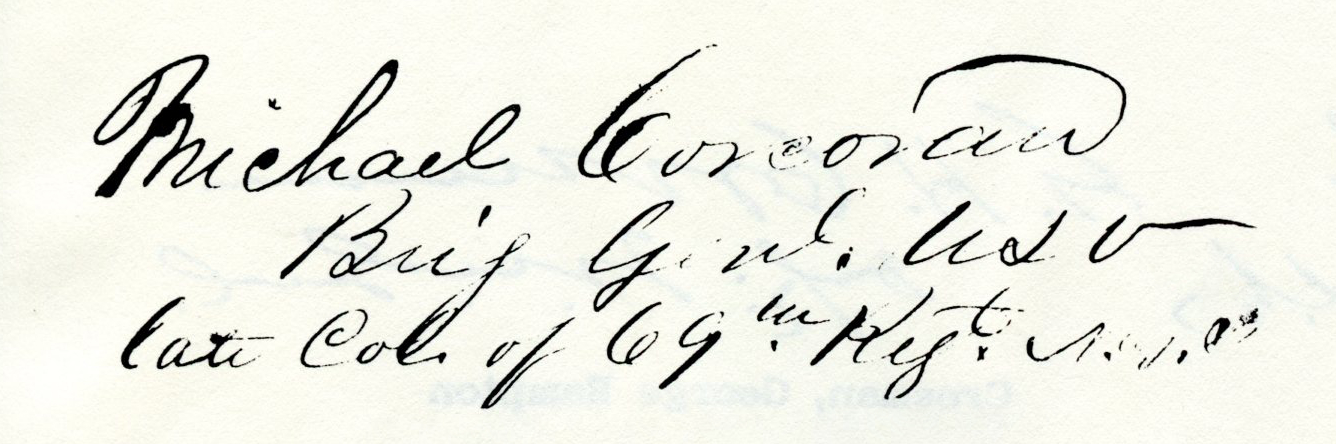 Michael Corcoran
Brig Genl. USV
late Col. of 69th Regt. N.Y.